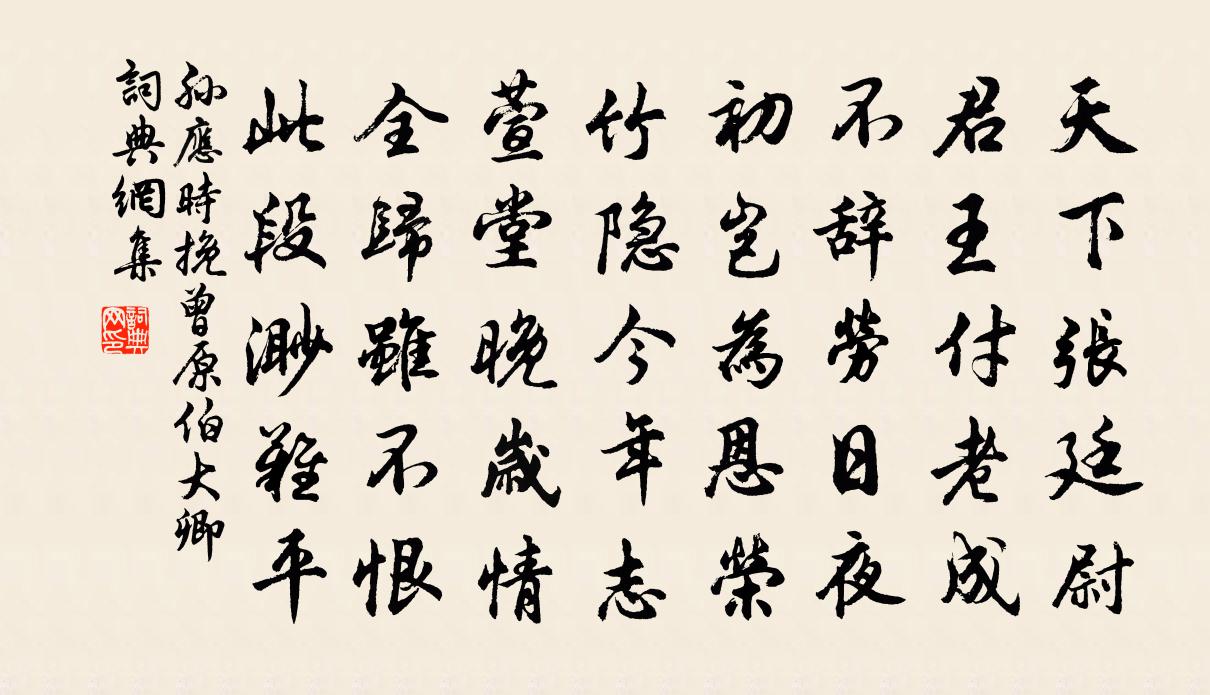 天下張廷尉
君王付老成
不辞勞日夜
初岂為恩榮
竹隐今年志
萱堂晚歳情
全歸雖不恨
此段渺難平
孫應時挽曾原伯大卿
詞典網集
詞典网印